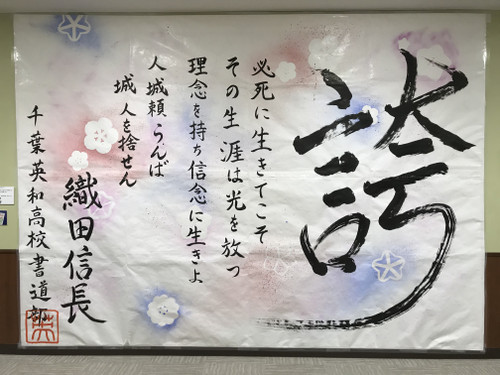 誇
必死に生きてこそ
その生涯は光を放つ
理念を持ち信念に生きよ
人城頼らんば
城人を捨せん
織田信長
千葉英和高校書道部